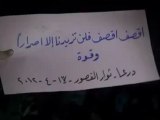 اقصف اقصف فلن تزيدنا إلا اصرارا
وقوة
درعا - ثوار القصور - ١٧ - ٤ - ٢٠١٢